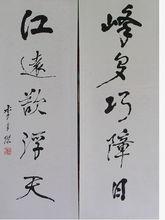 峰多巧障日
江远欲浮天